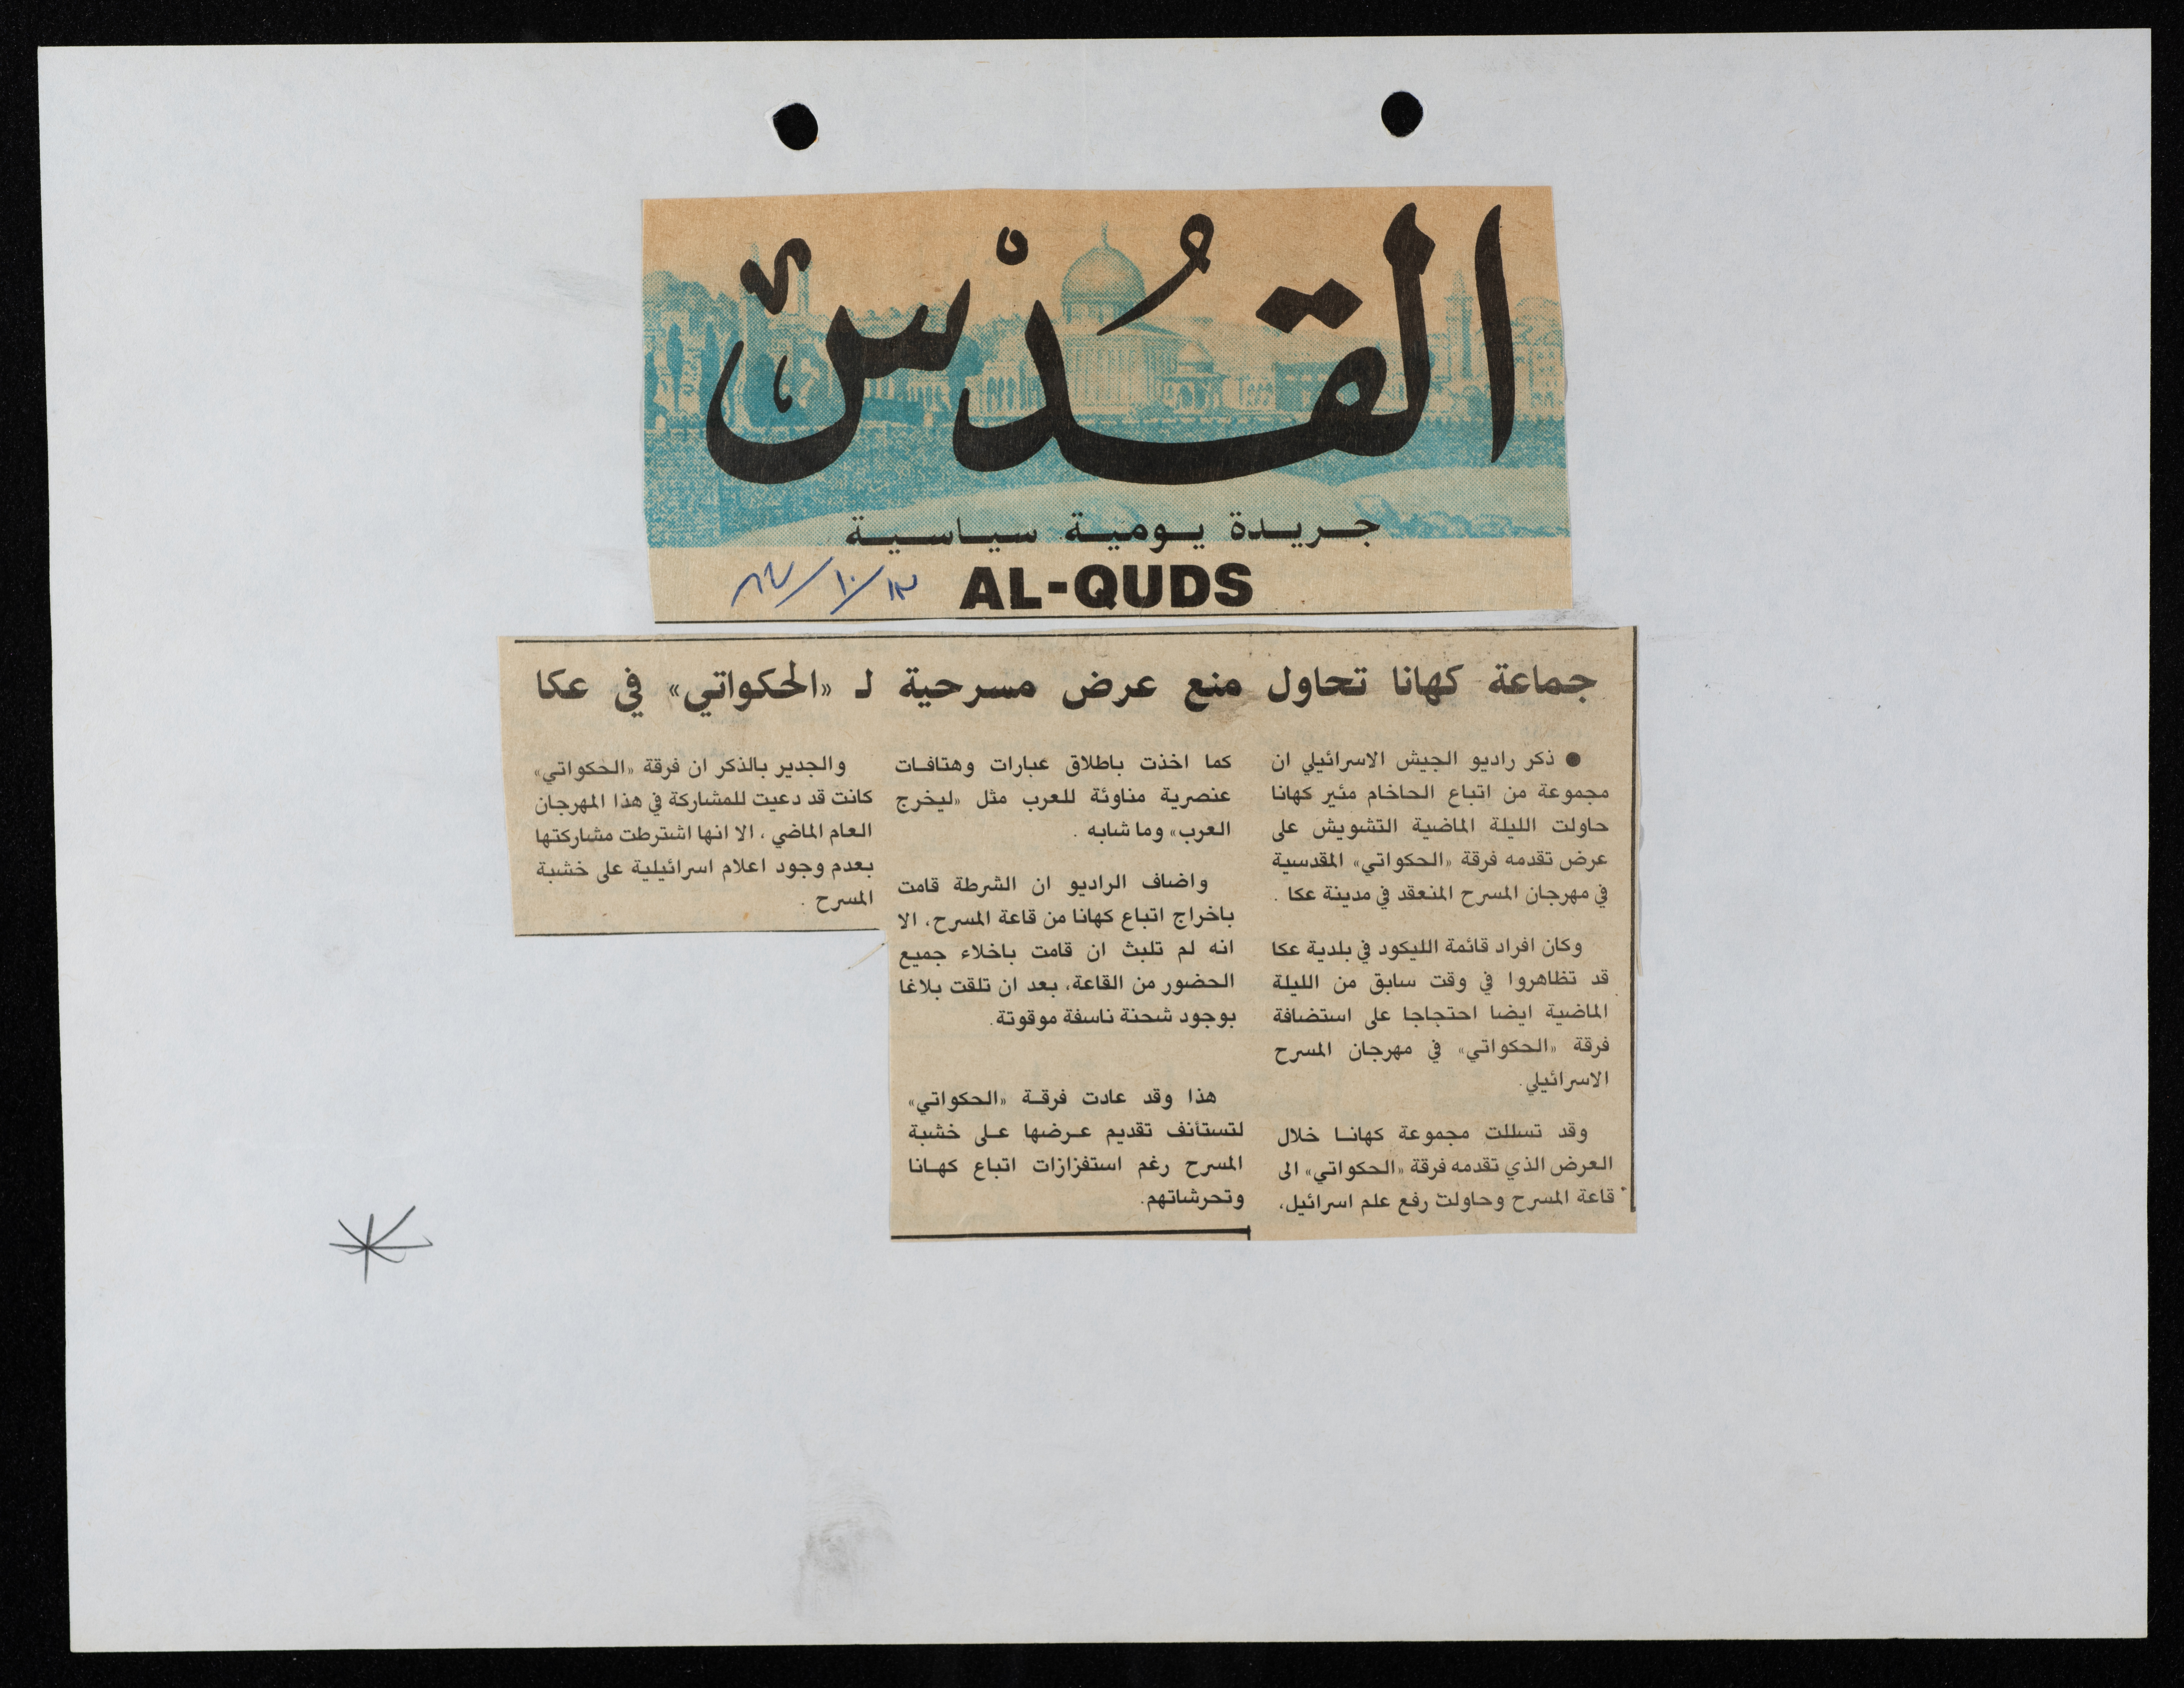 القُدْس
جريدة يومية سياسية
AL-QUDS
جماعة كهانا تحاول منع عرض مسرحية لـ «الحكواتي» في عكا
● ذكر راديو الجيش الاسرائيلي ان
مجموعة من اتباع الحاخام مئير كهانا
حاولت الليلة الماضية التشويش على
عرض تقدمه فرقة «الحكواتي» المقدسية
في مهرجان المسرح المنعقد في مدينة عكا .
وكان افراد قائمة الليكود في بلدية عكا
قد تظاهروا في وقت سابق من الليلة
الماضية ايضا احتجاجا على استضافة
فرقة «الحكواتي» في مهرجان المسرح
الاسرائيلي.
وقد تسللت مجموعة كهانا خلال
العرض الذي تقدمه فرقة «الحكواتي» الى
قاعة المسرح وحاولت رفع علم اسرائيل،
كما اخذت باطلاق عبارات وهتافات
عنصرية مناوئة للعرب مثل «ليخرج
العرب» وما شابه .
واضاف الراديو ان الشرطة قامت
باخراج اتباع كهانا من قاعة المسرح، الا
انه لم تلبث ان قامت باخلاء جميع
الحضور من القاعة، بعد ان تلقت بلاغا
بوجود شحنة ناسفة موقوتة.
هذا وقد عادت فرقة «الحكواتي»
لتستأنف تقديم عرضها على خشبة
المسرح رغم استفزازات اتباع كهانا
وتحرشاتهم.
والجدير بالذكر ان فرقة «الحكواتي»
كانت قد دعيت للمشاركة في هذا المهرجان
العام الماضي ، الا انها اشترطت مشاركتها
بعدم وجود اعلام اسرائيلية على خشبة
المسرح .